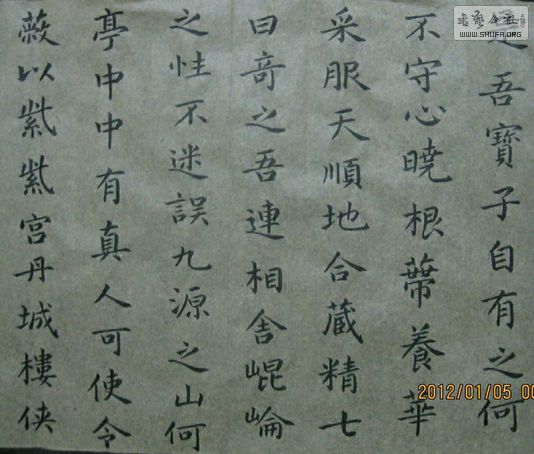 書藝公社
WWW.SHUFA.ORG
是吾寶子自有之何
不守心曉根蔕養華
采服天順地合藏精七
日奇之吾連相舍崐崘
之性不迷誤九源之山何
亭中中有真人可使令
蔽以紫紫宮丹城樓侠
2012/01/05 00